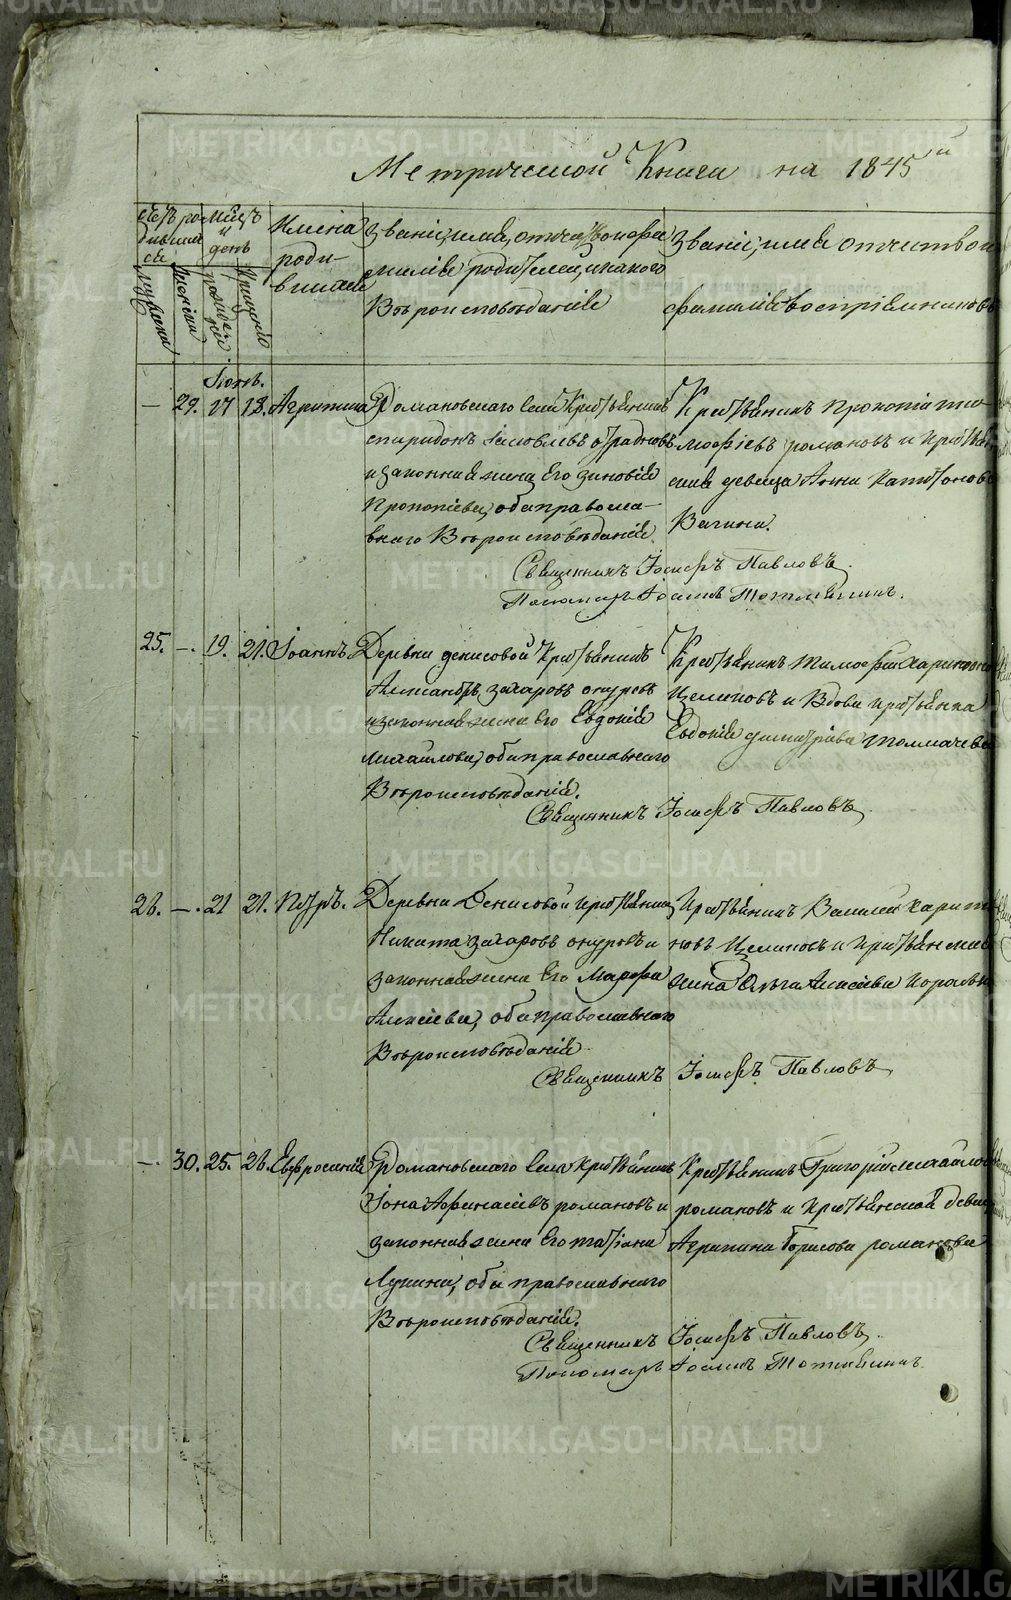 Метрической Книги на 1845й
Счетъ родившихся
Мужеска
Женска
Мѣсяцъ и день
рожденія
Крещенія
Имена родившихся
Званіе, имя, отчество и фамилія родителей, и какого Вѣроисповѣданія
Званіе, имя отчество и фамилія воспріемниковъ
Іюнь.
— 29. 17 18. Агрипина
Романовскаго села Крестьянинъ
спиридонъ Іаковлевъ
и законная жена Его зиновія
Прокопіева, оба православнаго Вѣроисповѣданія
Крестьянинъ Прокопій тимофѣевъ романовъ и крестьянская девица Анна
Вагина.
Священникъ Іосифъ Павловъ.
Пономарь Іоаннъ
25. —. 19. 21. Іоаннъ.
Деревни денисовой Крестьянинъ
Александръ, захаровъ окуловъ
и законная жена Его Евдокія
михайлова, оба православнаго
Вѣроисповѣданія.
Крестьянинъ Тимофей харитоновъ
и Вдова крестьянка
Евдокія димитріева толмачева
Священникъ Іосифъ Павловъ
26. —. 21 21. Петръ.
Деревни Денисовой крестьянинъ
Никита захаровъ окуловъ и
законная жена Его Марфа
Алексіева, оба православнаго
Вѣроисповѣданія
Крестьянинъ Василей харитоновъ и крестьянская
жена Ольга Алексіева
Священникъ Іосифъ Павловъ
—. 30. 25. 26. Евфросинія
Романовскаго села крестьянинъ
Іона Афанасіевъ романовъ и
законная жена Его татіана
Лукина, оба православнаго
Вѣроисповѣданія.
Крестьянинъ Григорій михайловъ
романовъ и крестьянской девица
Агрипина Борисова романова
Священникъ Іосифъ Павловъ.
Пономарь Іоаннъ
METRIKI.GASO-URAL.RU